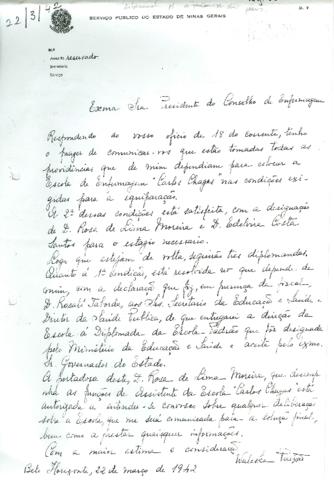 22/3/42
SERVIÇO PUBLICO DO ESTADO DE MINAS GERAIS
reservado
Secretaria
Serviço
Exma Sra Presidente do Conselho de Enfermagem
Respondendo ao vosso oficio de 18 do corrente, tenho
o prazer de comunicar-vos que estão tomadas todas as
providências que de mim dependiam para colocar a
Escola de Enfermagem "Carlos Chagas" nas condições exi-
gidas para a equiparação.
A 2ª dessas condições está satisfeita, com a designação
de D. Rosa de Lima Moreira e D. Edelvira Costa
Santos para o estagio necessario.
Logo que estejam de volta, seguirão tres diplomandas.
Quanto á 1ª condição, está resolvida no que depende de
mim, com a declaração que fiz, em presença da fiscal,
D. Rosaly Taborda, aos Srs. Secretario de Educação e Saude e
Diretor da Saude Publica, de que entregarei a direção da
Escola á Diplomada da Escola Padrão que fôr designada
pelo Ministério da Educação e Saude e aceita pelo exmo.
Sr. Governador do Estado.
A portadora desta, D. Rosa de Lima Moreira, que desempe-
nha as funções de Assistente da Escola "Carlos Chagas" está
autorizada a entender-se convosco sobre qualquer deliberação
sobre a Escola, que me será comunicada para a solução final,
bem como a prestar quaisquer informações.
Com a maior estima e consideração
Waleska Paixão
Belo Horizonte, 22 de março de 1942